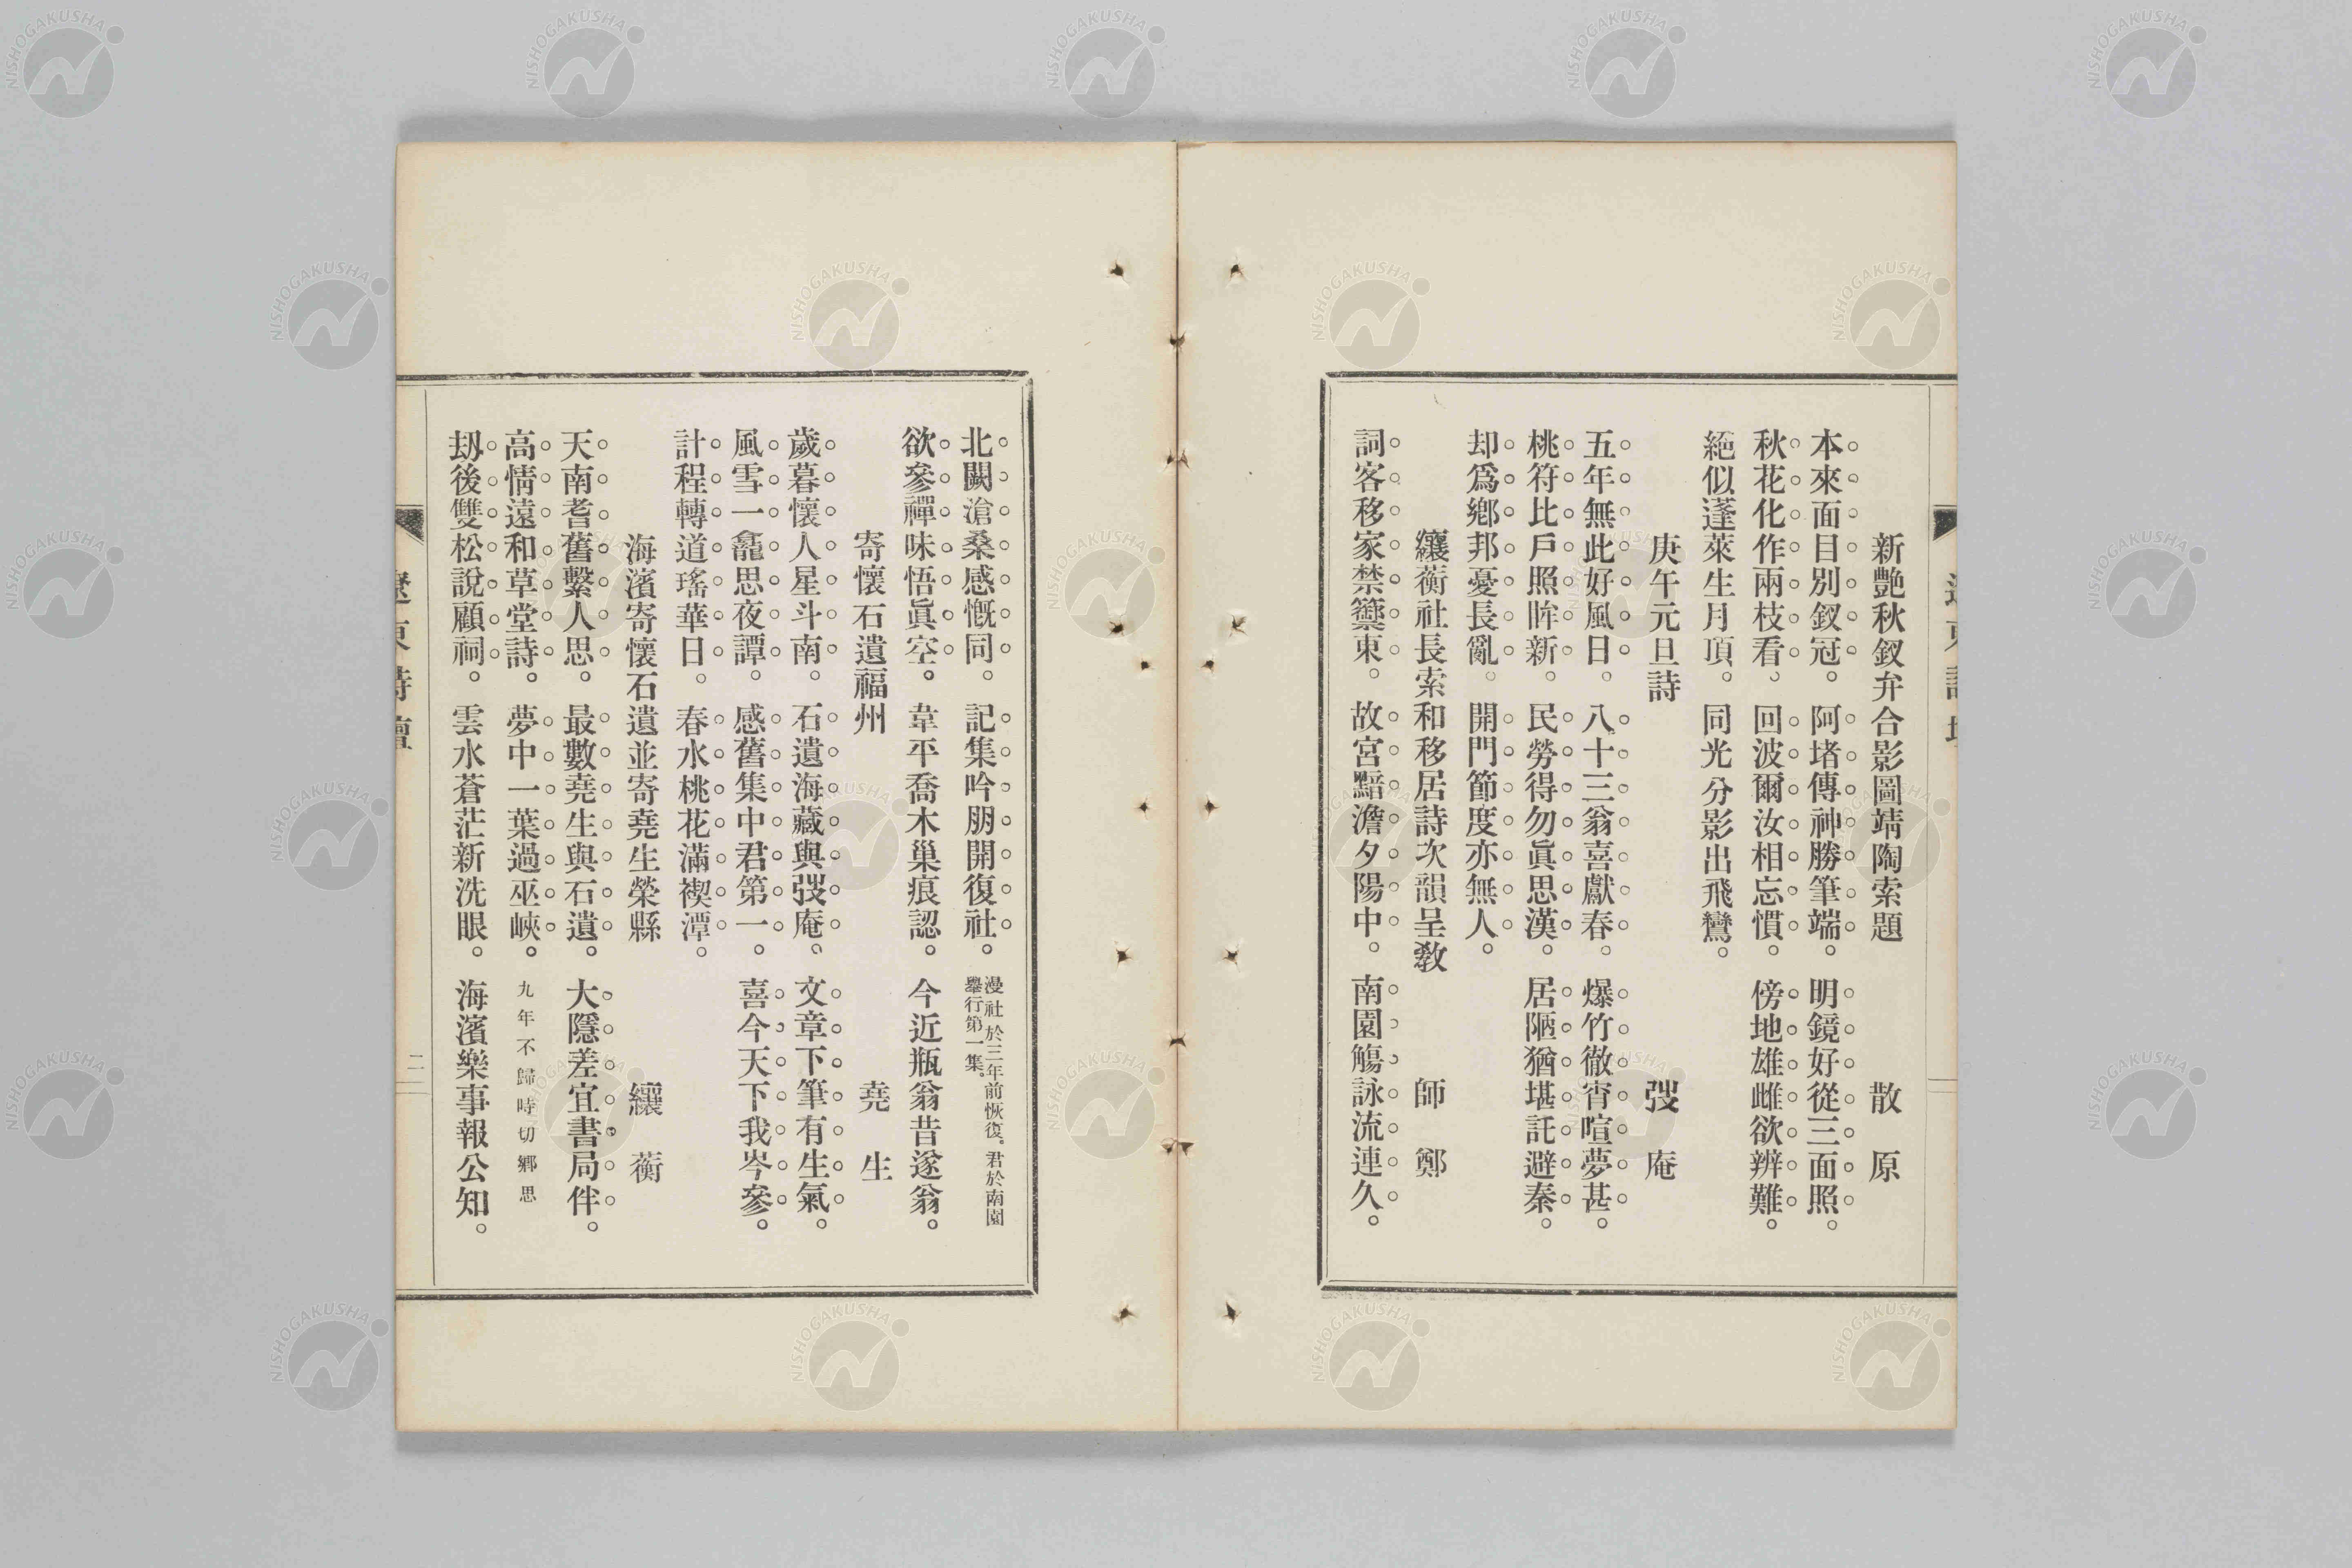 新艷秋釵弁合影圖靖陶索題　散原
本來面目別釵冠。阿堵傳神勝筆端。明鏡好從三面照。
秋花化作兩枝看。回波爾汝相忘慣。傍地雄雌欲辨難。
絕似蓬萊生月頂。同光分影出飛鸞。
庚午元旦詩　弢庵
五年無此好風日。八十三翁喜獻春。爆竹徹宵喧夢甚。
桃符比戶照眸新。民勞得勿眞思漢。居陋猶堪託避秦。
却爲鄉邦憂長亂。開門節度亦無人。
纕蘅社長索和移居詩次韻呈敎　師鄭
詞客移家禁籞東。故宮黯澹夕陽中。南園觴詠流連久。
北闕滄桑感慨同。記集吟朋開復社。漫社於三年前恢復。君於南園擧行第一集。
欲參禪味悟眞空。韋平喬木巢痕認。今近瓶翁昔遂翁。
寄懷石遺福州　堯生
歲暮懷人星斗南。石遺海藏與弢庵。文章下筆有生氣。
風雪一龕思夜譚。感舊集中君第一。喜今天下我岑參。
計程轉道瑤華日。春水桃花滿禊潭。
海濱寄懷石遺並寄堯生榮縣　纕蘅
天南耆舊繫人思。最數堯生與石遺。大隱差宜書局伴。
高情遠和草堂詩。夢中一葉過巫峽。九年不歸時切鄉思
刼後雙松說顧祠。雲水蒼茫新洗眼。海濱樂事報公知。
遼東詩壇
二
NISHOGAKUSHA